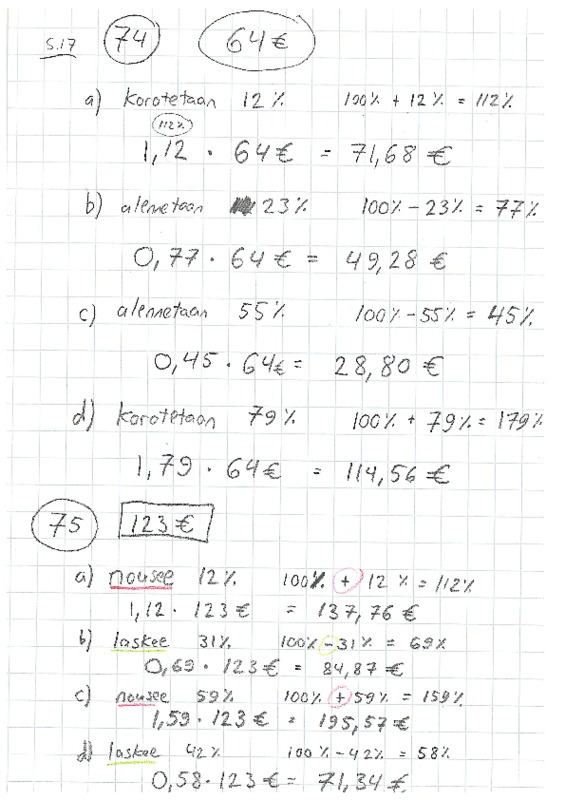 S.17 74 64 €
a) korotetaan 12 % 100% + 12 % = 112 %
112%
1,12 · 64 € = 71,68 €
b) alennetaan 23 % 100% - 23 % = 77 %
0,77 · 64 € = 49,28 €
c) alennetaan 55 % 100% - 55 % = 45 %
0,45 · 64 € = 28,80 €
d) korotetaan 79 % 100% + 79 % = 179 %
1,79 · 64 € = 114,56 €
75 123 €
a) nousee 12 % 100% + 12 % = 112 %
1,12 · 123 € = 137,76 €
b) laskee 31 % 100% - 31 % = 69 %
0,69 · 123 € = 84,87 €
c) nousee 59 % 100% + 59 % = 159 %
1,59 · 123 € = 195,57 €
d) laskee 42 % 100 % - 42 % = 58 %
0,58 · 123 € = 71,34 €